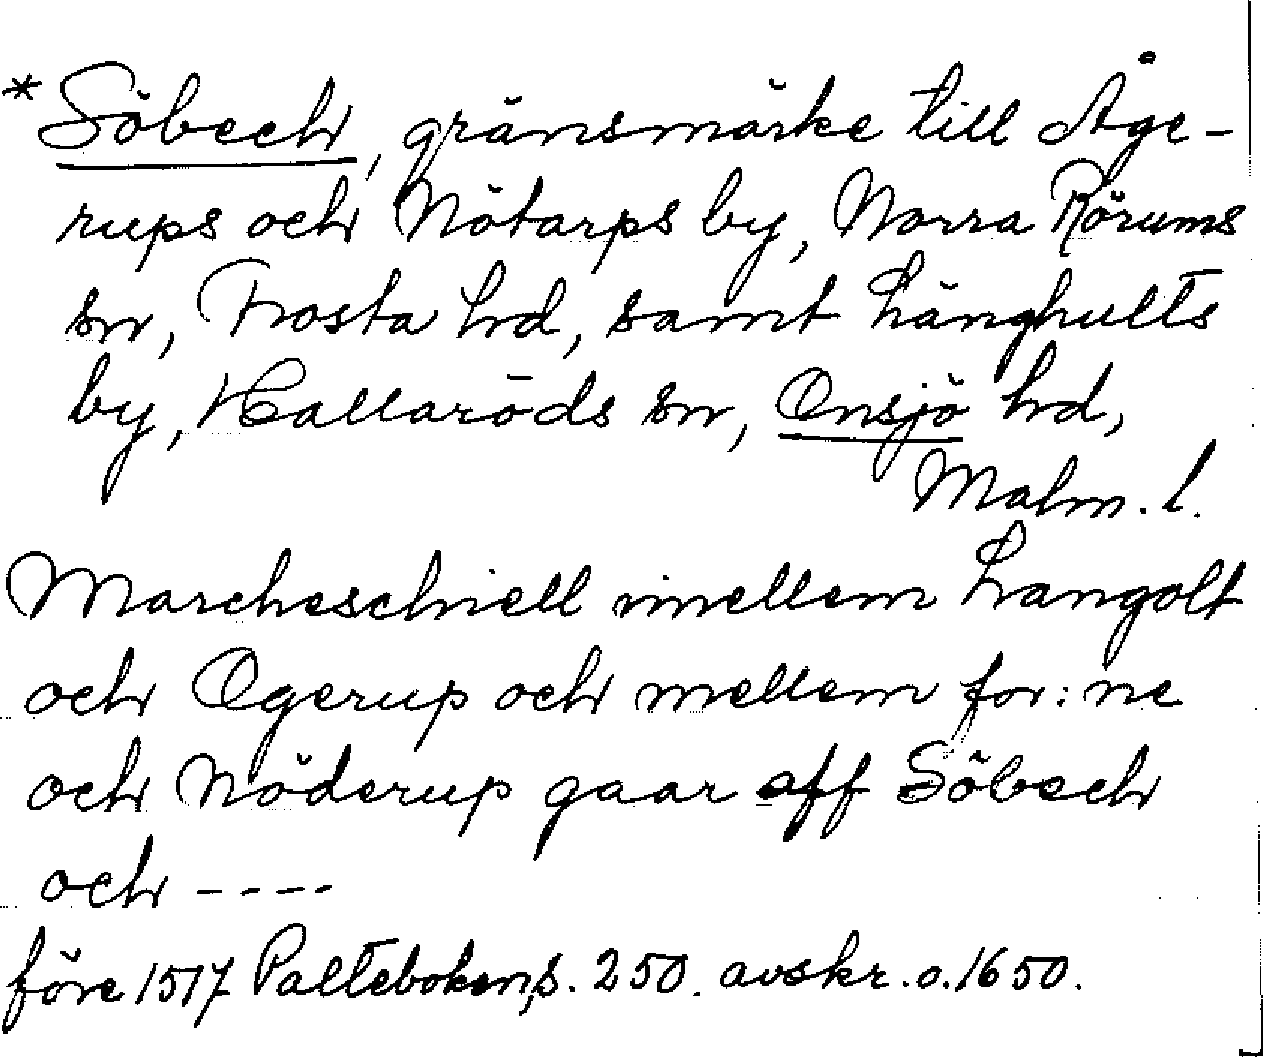 * Söbech, gränsmärke till Åge-
rups och Nötarps by, Norra Rörums
sn, Frosta hd, samt Långhults
by, Hallaröds sn, Onsjö hd,
Malm. l.
Marcheschiell imellem Langolt
och Ogerup och mellem for: ne
och Nöderup gaar aff Söbech
och ----
före 1517 Palteboken, s. 250. avskr. o. 1650.